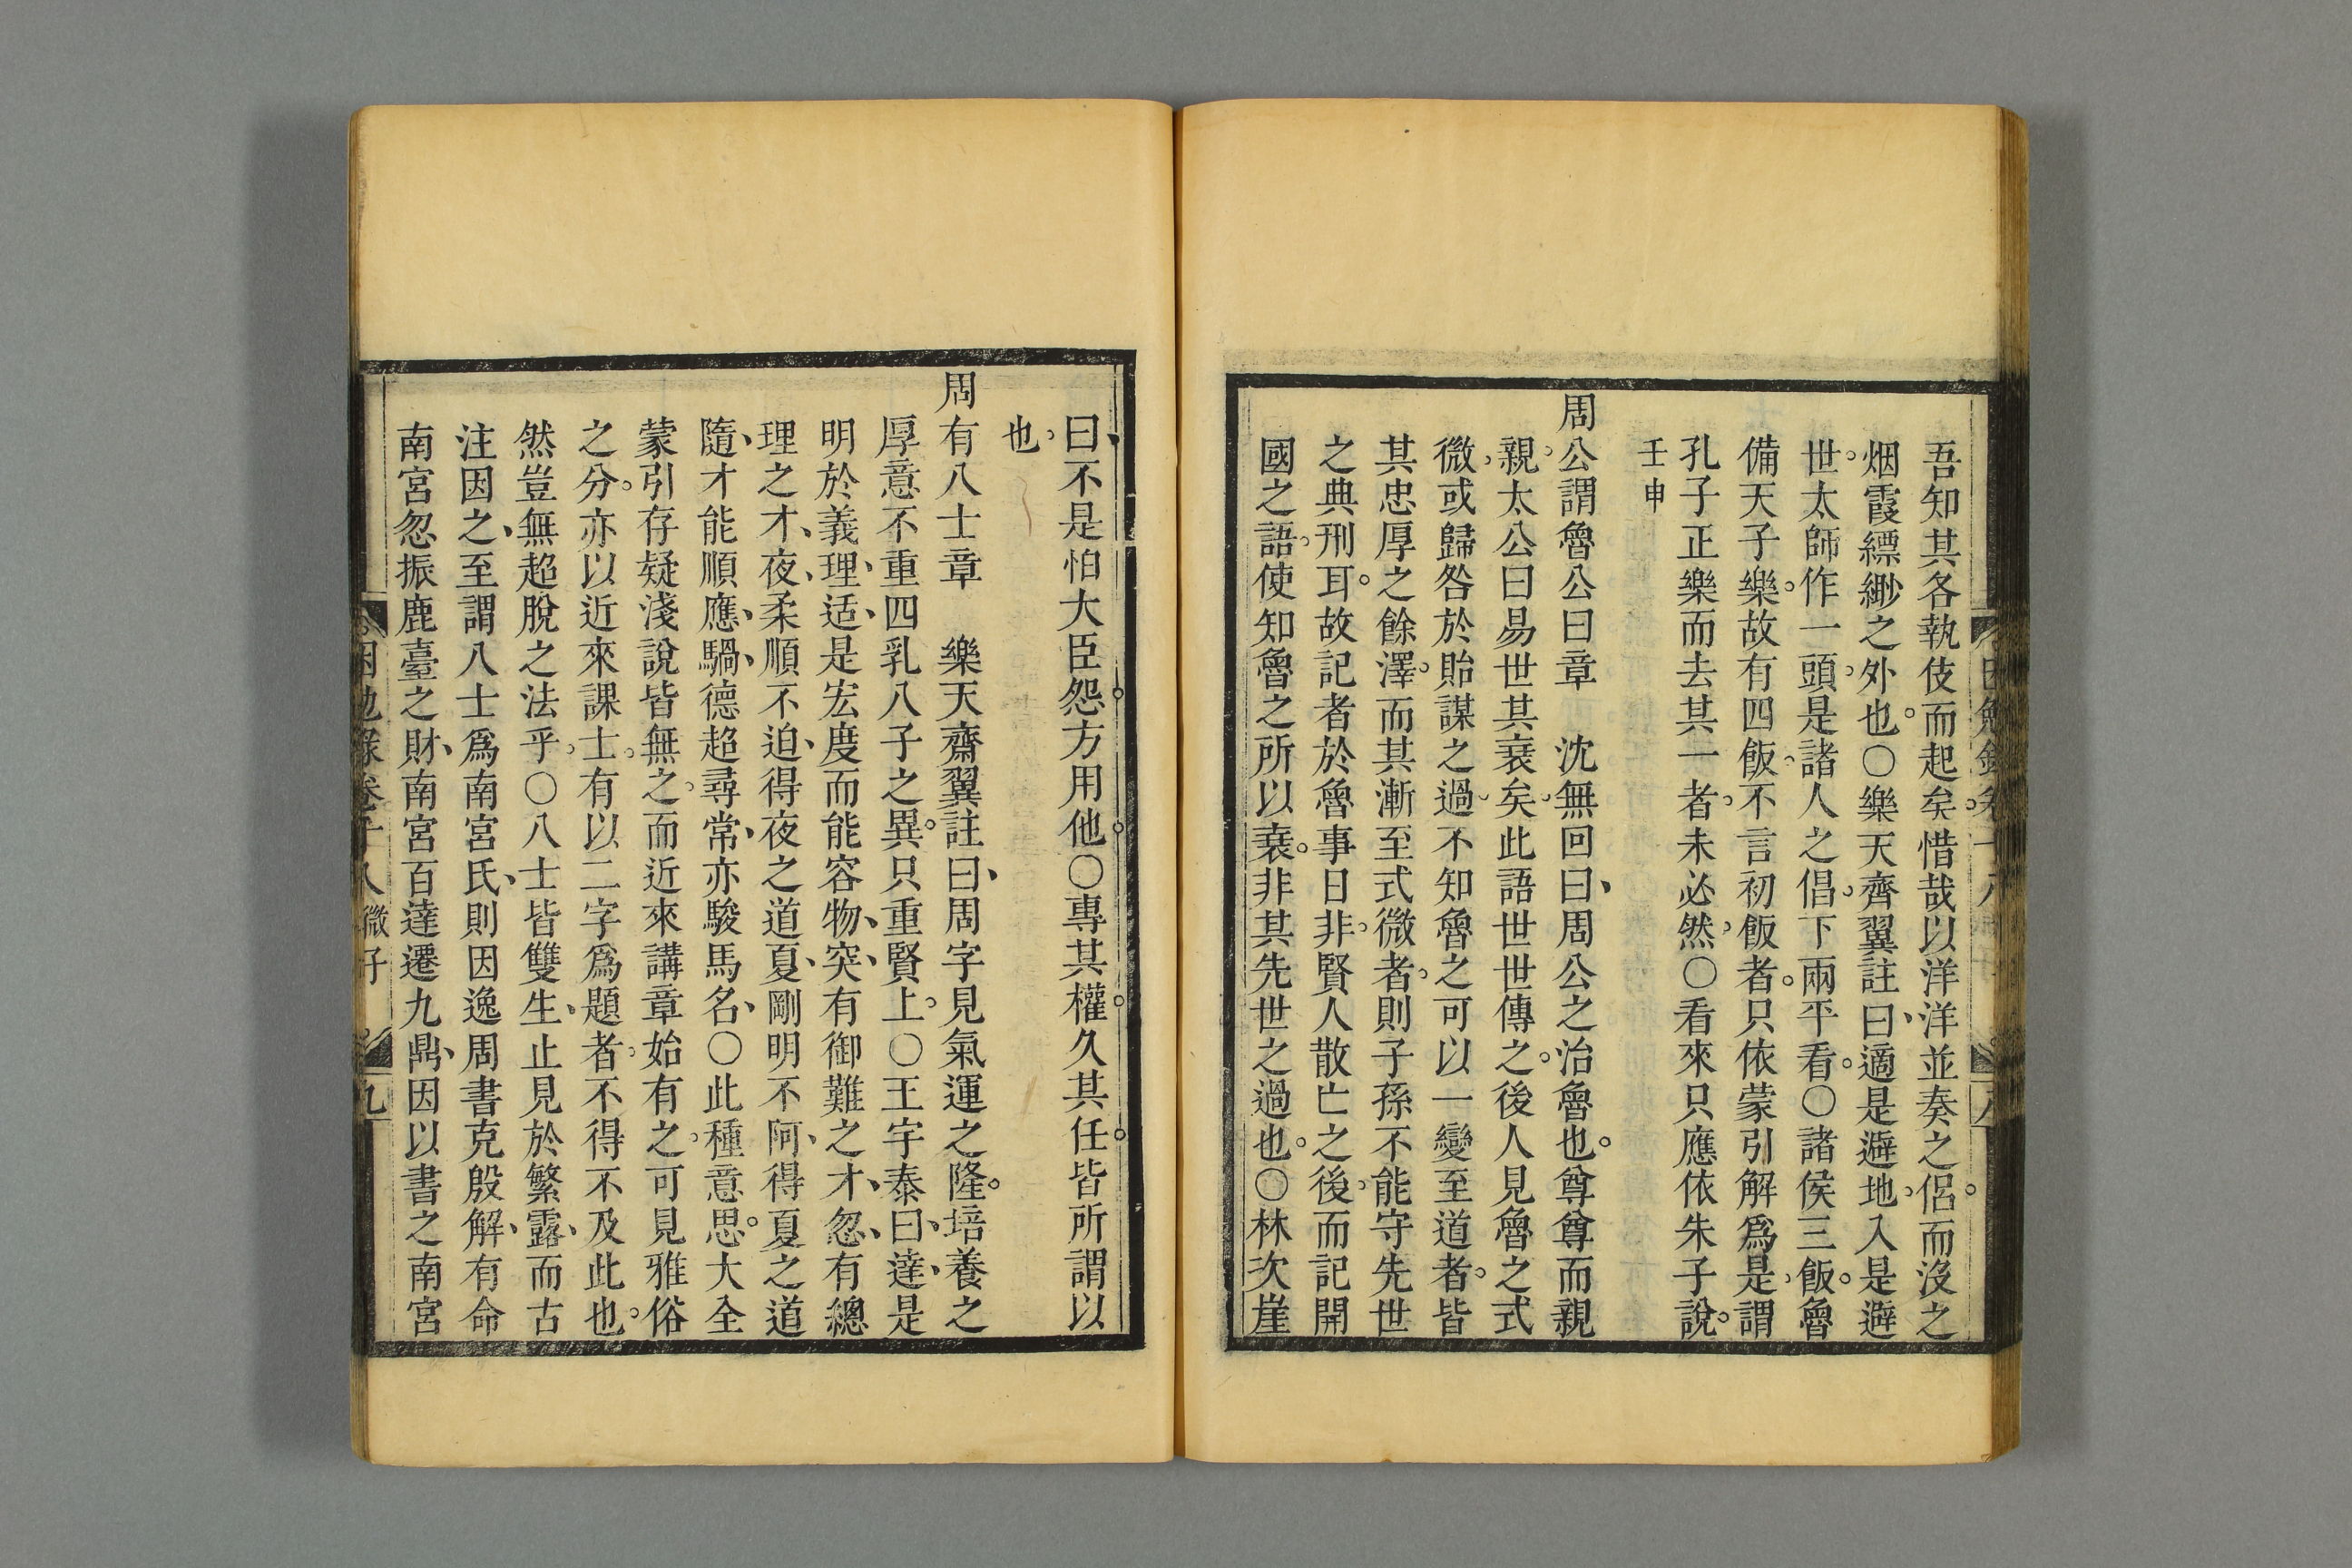 吾知其各執伎而起矣惜哉以洋洋並奏之侶而沒之
烟霞縹緲之外也○樂天齊翼註曰適是避地入是避
世太師作一頭是諸人之倡下兩平看○諸侯三飯魯
備天子樂故有四飯不言初飯者只依蒙引解爲是謂
孔子正樂而去其一者未必然○看來只應依朱子說
壬申
周公謂魯公曰章　沈無回曰周公之治魯也尊尊而親
親太公曰易世其衰矣此語世世傳之後人見魯之式
微或歸咎於貽謀之過不知魯之可以一變至道者皆
其忠厚之餘澤而其漸至式微者則子孫不能守先世
之典刑耳故記者於魯事日非賢人散亡之後而記開
國之語使知魯之所以衰非其先世之過也○林次崖
曰不是怕大臣怨方用他○專其權久其任皆所謂以
也
周有八士章　樂天齋翼註曰周字見氣運之隆培養之
厚意不重四乳八子之異只重賢上○王宇泰曰達是
明於義理适是宏度而能容物突有御難之才忽有總
理之才夜柔順不迫得夜之道夏剛明不阿得夏之道
隨才能順應騧德超尋常亦駿馬名○此種意思大全
蒙引存疑淺說皆無之而近來講章始有之可見雅俗
之分亦以近來課士有以二字爲題者不得不及此也
然豈無超脫之法乎○八士皆雙生止見於繁露而古
注因之至謂八士爲南宮氏則因逸周書克殷解有命
南宮忽振鹿臺之財南宮百達遷九鼎因以書之南宮
微子
九